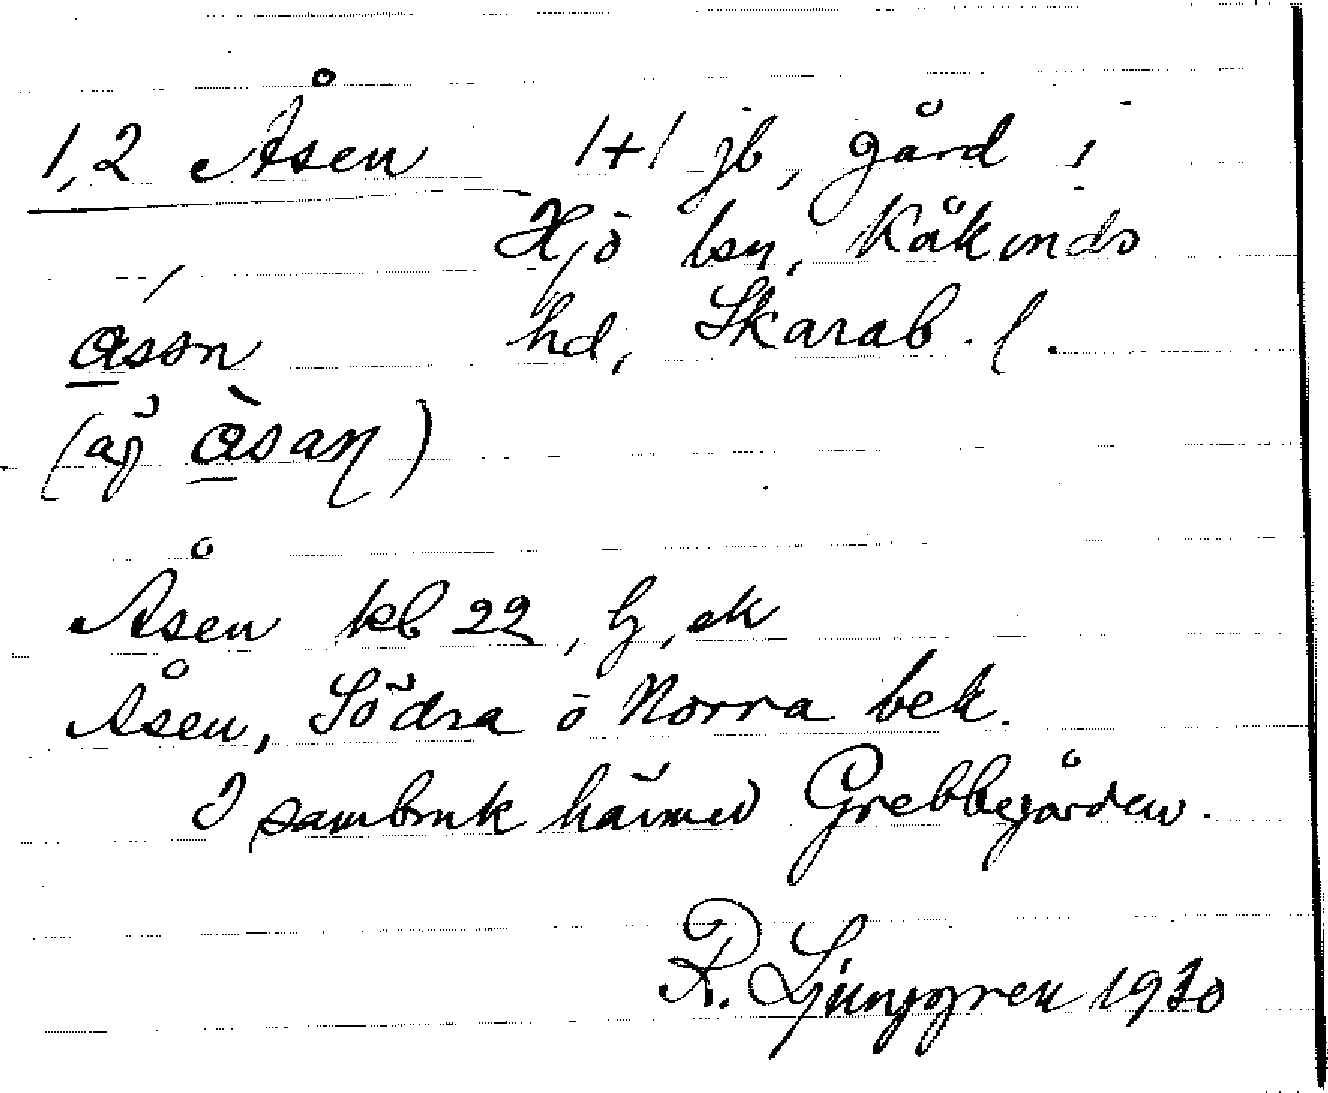 1,2 Åsen 1+1 jb, gård i
Hjo lsn, Kåkinds
hd, Skarab. l.
åsen kb 22, G, ek
Åsen, Södra o Norra bek.
I sambruk härmed Grebbegården.
R. Ljunggren 1930